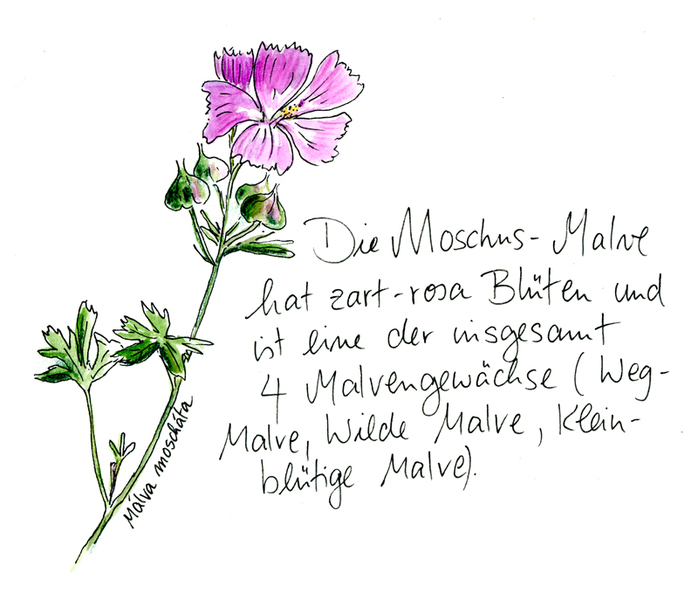 Die Moschus-Malve
hat zart-rosa Blüten und
ist eine der insgesamt
4 Malvengewächse (Weg-
Malve, Wilde Malve, Klein-
blütige Malve).
Málva moscháta